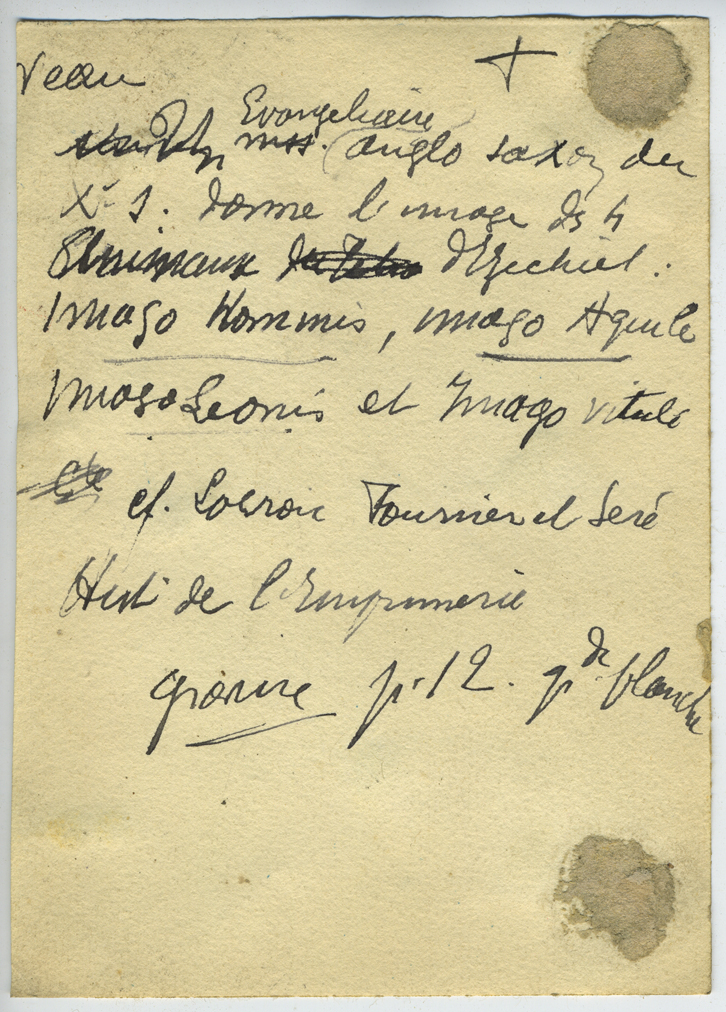 veau +
Evangeliaire
mss. anglo saxon du
Xe s. donne l'image des 4
animaux d'Ezechiel.
Imago Hominis, imago Aquile
Imago Leonis et Imago vituli
cf. Fournier et Seré
Hist de l'Imprimerie
gravure p. 12. gde planche